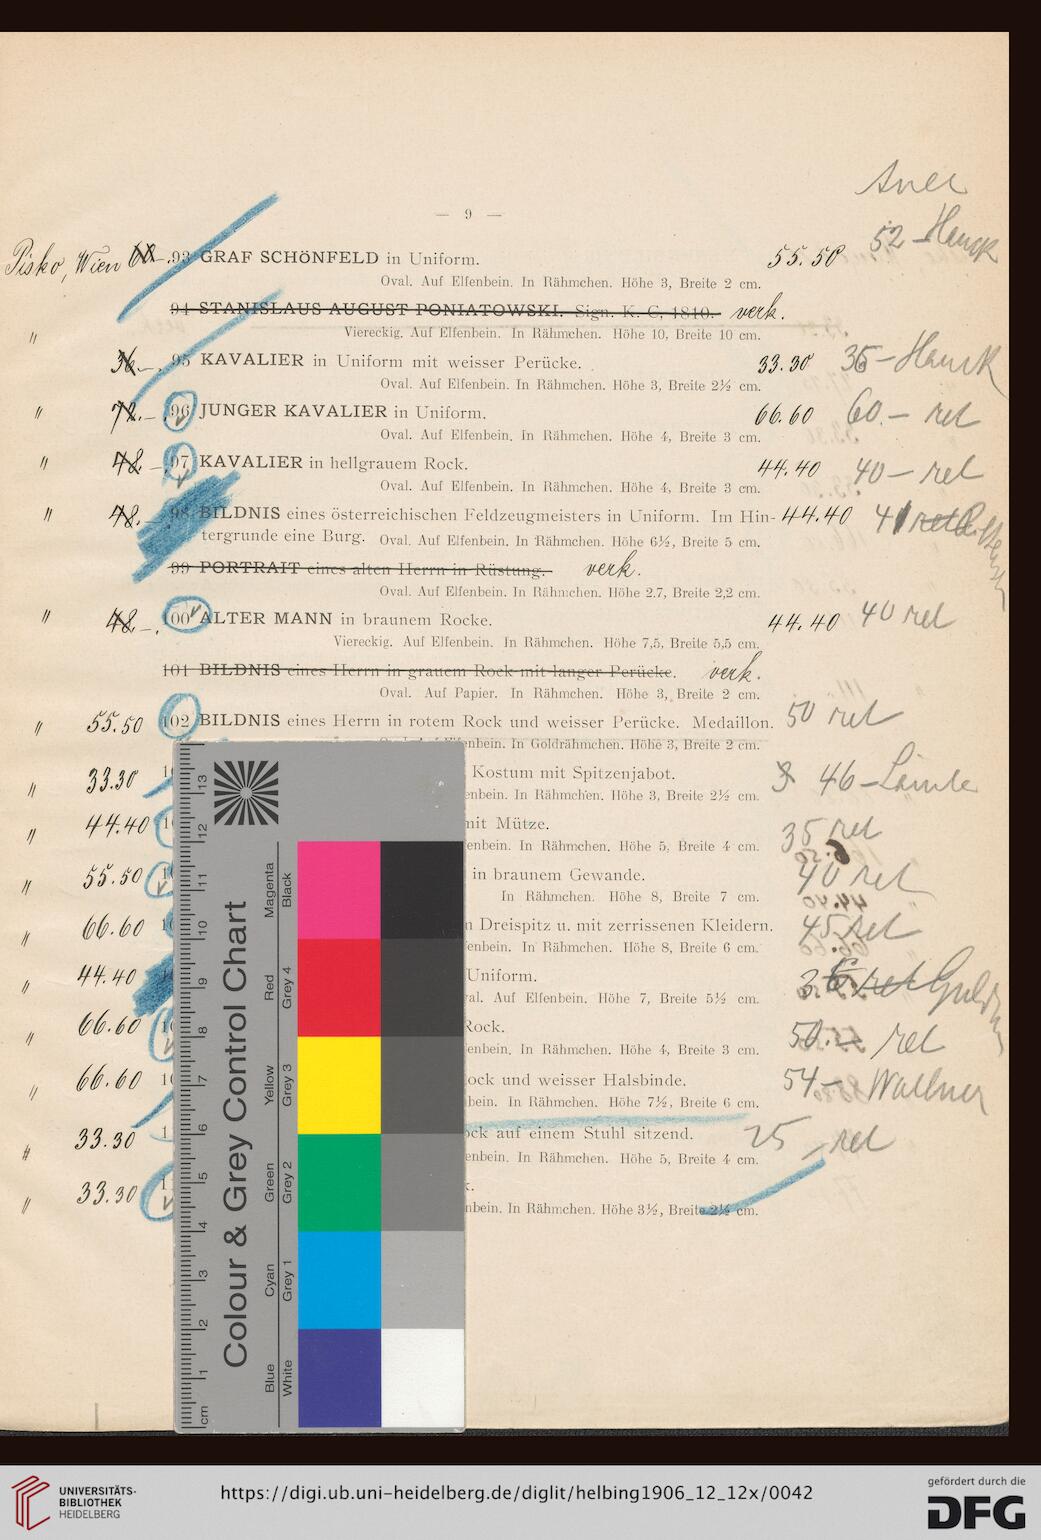 — 9 —
Pisko, Wien 60.– 93 GRAF SCHÖNFELD in Uniform. 55.50 52 – Hauck
Oval. Auf Elfenbein. In Rähmchen. Höhe 3, Breite 2 cm.
94 STANISLAUS AUGUST PONIATOWSKI. Sign. K. C, 1810. verk.
Viereckig. Auf Elfenbein. In Rähmchen. Höhe 10, Breite 10 cm.
" 36.–. 95 KAVALIER in Uniform mit weisser Perücke. 33.30 36– Hauck
Oval. Auf Elfenbein. In Rähmchen. Höhe 3, Breite 2½ cm.
" 72.– 96 JUNGER KAVALIER in Uniform. 66.60 60.– ret
Oval. Auf Elfenbein. In Rähmchen. Höhe 4, Breite 3 cm.
" 48.– 97 KAVALIER in hellgrauem Rock. 44.40 40– ret
Oval. Auf Elfenbein. In Rähmchen. Höhe 4, Breite 3 cm.
" 48.– 98 BILDNIS eines österreichischen Feldzeugmeisters in Uniform. Im Hin- 44.40 41 ret
tergrunde eine Burg. Oval. Auf Elfenbein. In Rähmchen. Höhe 6½, Breite 5 cm.
99 PORTRAIT eines alten Herrn in Rüstung. verk.
Oval. Auf Elfenbein. In Rähmchen. Höhe 2.7, Breite 2,2 cm.
" 48.–. 100 ALTER MANN in braunem Rocke. 44.40 40 ret
Viereckig. Auf Elfenbein. In Rähmchen. Höhe 7,5, Breite 5,5 cm.
101 BILDNIS eines Herrn in grauem Rock mit langer Perücke. verk.
Oval. Auf Papier. In Rähmchen. Höhe 3, Breite 2 cm.
" 55.50 102 BILDNIS eines Herrn in rotem Rock und weisser Perücke. Medaillon. 50 ret
Elfenbein. In Goldrähmchen. Höhe 3, Breite 2 cm.
" 33.30 Kostum mit Spitzenjabot. 46–
enbein. In Rähmchen. Höhe 3, Breite 2½ cm.
" 44.40 mit Mütze. 35 ret
enbein. In Rähmchen. Höhe 5, Breite 4 cm.
" 55.50 in braunem Gewande. 40 ret
In Rähmchen. Höhe 8, Breite 7 cm.
" 66.60 n Dreispitz u. mit zerrissenen Kleidern. 45 ret
enbein. In Rähmchen. Höhe 8, Breite 6 cm.
" 44.40 Uniform. ret
val. Auf Elfenbein. In Rähmchen. Höhe 7, Breite 5½ cm.
" 66.60 Rock. 50.– ret
enbein. In Rähmchen. Höhe 4, Breite 3 cm.
" 66.60 ock und weisser Halsbinde. 54– Wallner
bein. In Rähmchen. Höhe 7½, Breite 6 cm.
" 33.30 ock auf einem Stuhl sitzend. 25 – ret
enbein. In Rähmchen. Höhe 5, Breite 4 cm.
" 33.30
nbein. In Rähmchen. Höhe 3½, Breite 2½ cm.
Colour & Grey Control Chart
Blue Cyan Green Yellow Red Magenta
White Grey 1 Grey 2 Grey 3 Grey 4 Black
cm 1 2 3 4 5 6 7 8 9 10 11 12 13
UNIVERSITÄTS-
BIBLIOTHEK
HEIDELBERG
https://digi.ub.uni-heidelberg.de/diglit/helbing1906_12_12x/0042
gefördert durch die
DFG